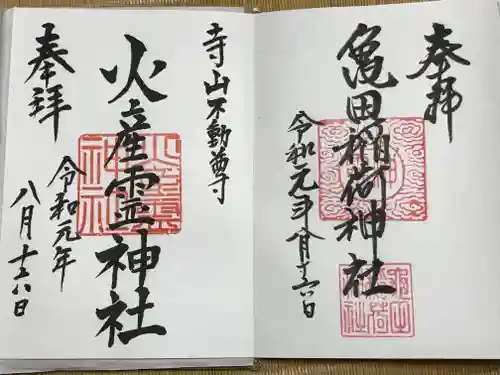 奉拝
亀田稲荷神社
令和元年八月十六日
寺山不動尊
火産霊神社
奉拝
令和元年
八月十六日